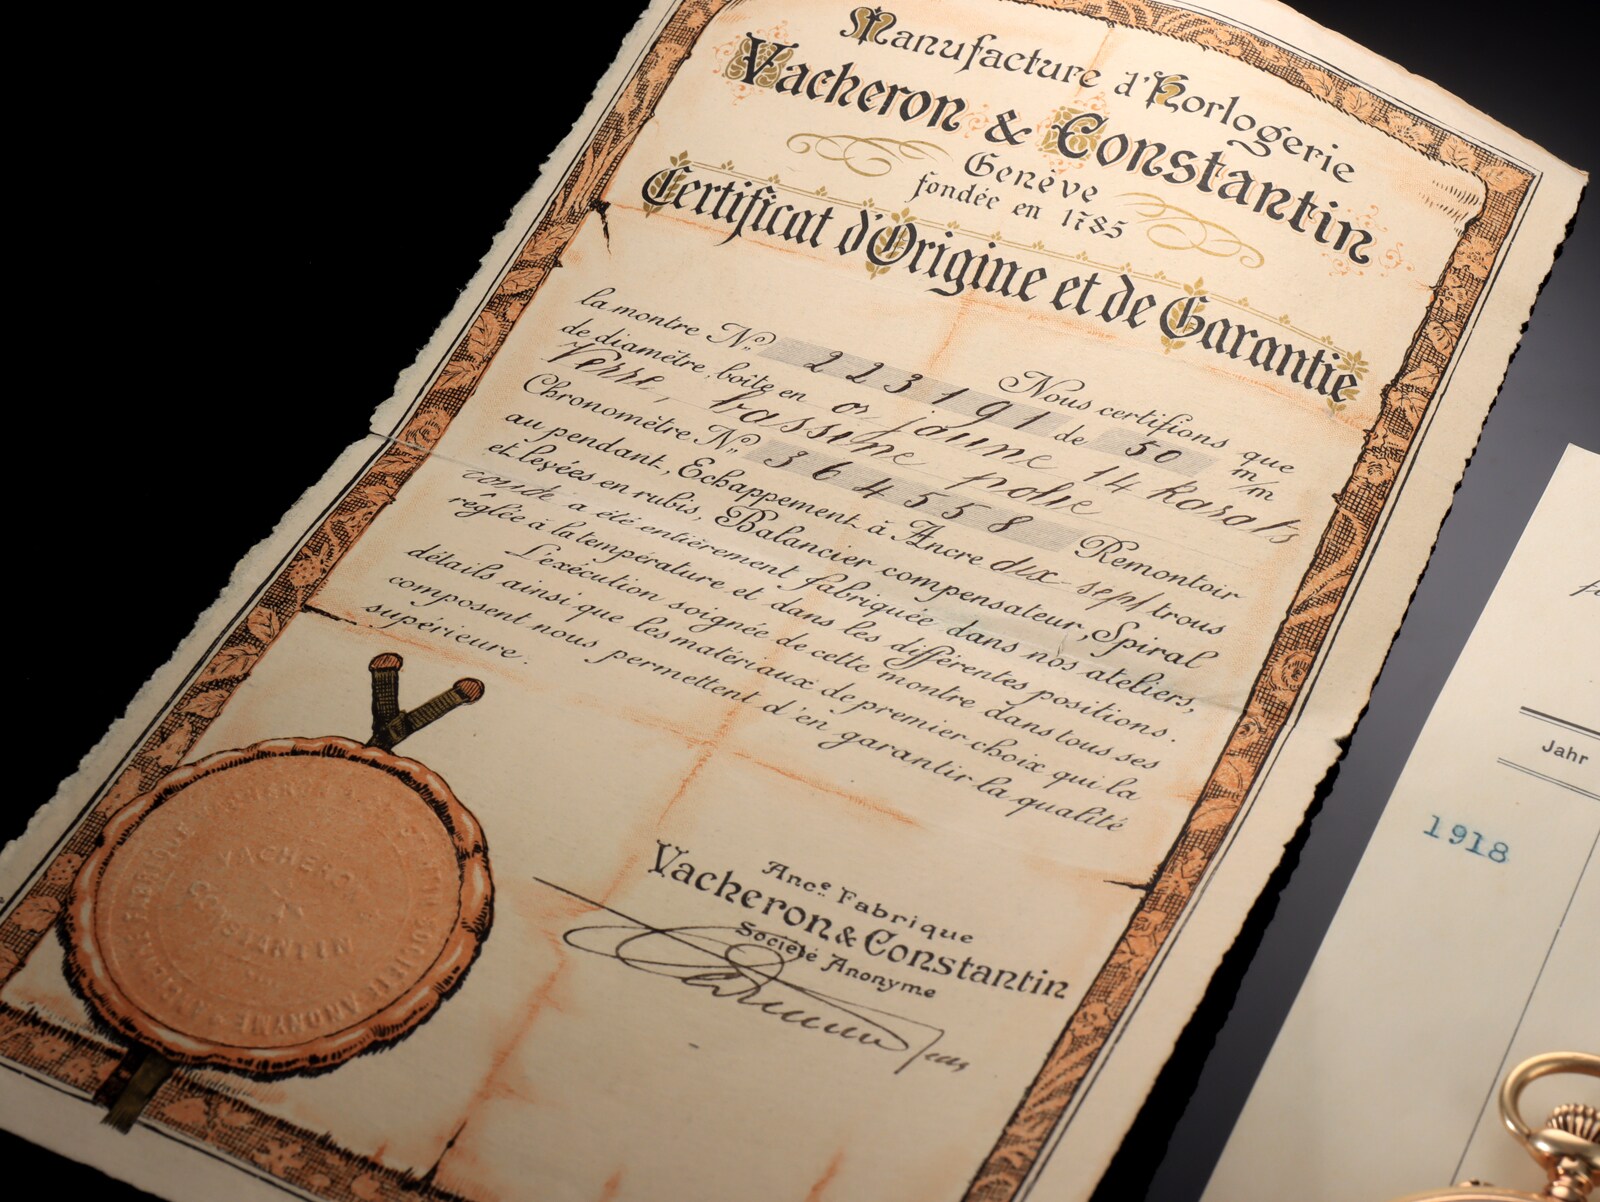 Manufacture d'Horlogerie
Vacheron & Constantin
Genève
fondée en 1785
Certificat d'Origine et de Garantie
Nous certifions que
la montre N° 223191 de 50 m/m
de diamètre, boîte en or jaune 14 karats
Verre, bassine polie
Chronomètre N° 364558 Remontoir
au pendant, Echappement à Ancre dix-sept trous
et levées en rubis, Balancier compensateur, Spiral
coudé a été entièrement fabriquée dans nos ateliers,
réglée à la température et dans les différentes positions.
L'exécution soignée de cette montre dans tous ses
détails ainsi que les matériaux de premier choix qui la
composent nous permettent d'en garantir la qualité
supérieure.
Anc.e Fabrique
Vacheron & Constantin
Société Anonyme
VACHERON &
CONSTANTIN
SOCIETE ANONYME
Jahr
1918